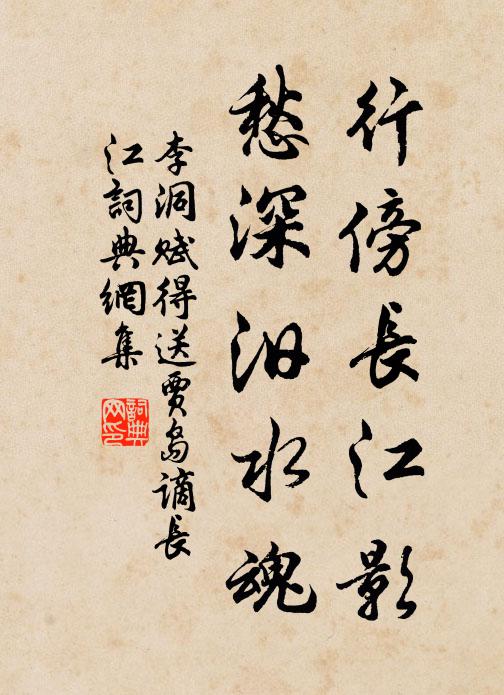 行傍長江影
愁深汨水魂
李洞賦得送賈島謫長
江詞典網集
詞典
网印